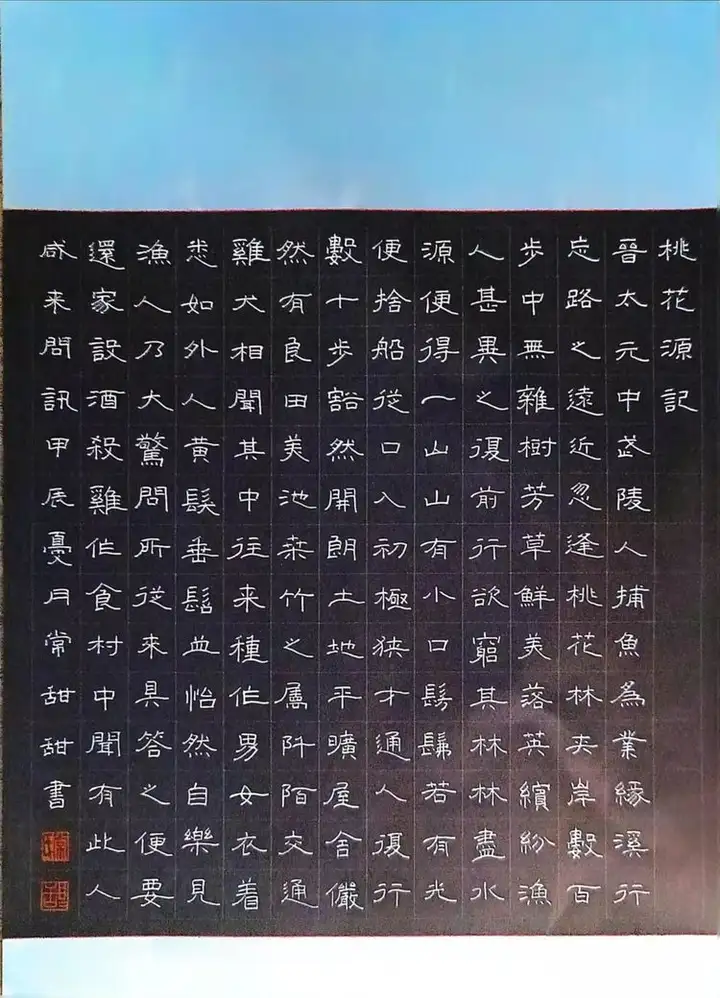 桃花源記
晉太元中武陵人捕魚為業緣溪行
忘路之遠近忽逢桃花林夾岸數百
步中無雜樹芳草鮮美落英繽紛漁
人甚異之復前行欲窮其林林盡水
源便得一山山有小口髣髴若有光
便捨船從口入初極狹才通人復行
數十步豁然開朗土地平曠屋舍儼
然有良田美池桒竹之屬阡陌交通
雞犬相聞其中往来種作男女衣着
悉如外人黄髮垂髫並怡然自樂見
漁人乃大驚問所從来具答之便要
還家設酒殺雞作食村中聞有此人
咸来問訊甲辰夏月常甜甜書